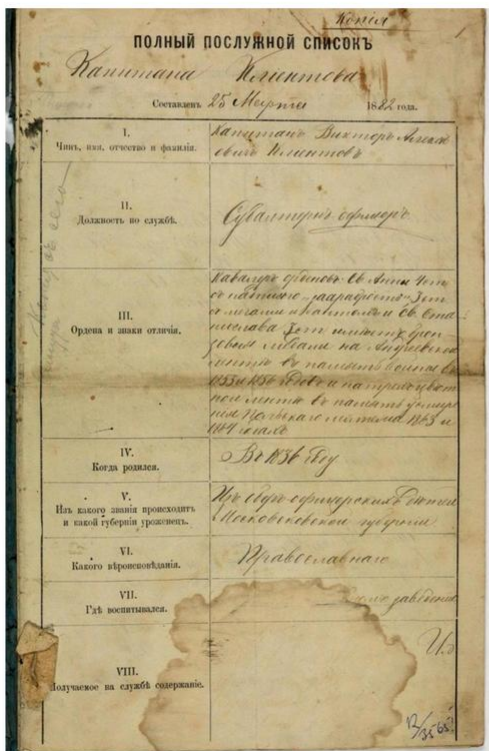 Копія
1
ПОЛНЫЙ ПОСЛУЖНОЙ СПИСОКЪ
Капитана Климентова
Составленъ 25 Марта 1882 года.
I.
Чинъ, имя, отчество и фамилія.
Капитанъ Викторъ Алексѣ
евичъ Климентовъ
II.
Должность по службѣ.
Субалтернъ офицеръ
III.
Ордена и знаки отличія.
Кавалеръ орденовъ Св. Анны 4 ст
съ надписью за храбрость 3 ст
съ мечами и бантомъ и Св. Ста
нислава 3 ст имѣетъ брон
зовыя медали на Андреевской
лентѣ въ память войны въ
1853 и 1856 годовъ и на трехцвѣт
ной лентѣ въ память усмире
нія Польскаго мятежа 1863 и
1864 годахъ
IV.
Когда родился.
Въ 1836 году
V.
Изъ какого званія происходитъ
и какой губерніи уроженецъ.
Изъ оберъ офицерскихъ дѣтей
Московской губерніи
VI.
Какого вѣроисповѣданія.
Православнаго
VII.
Гдѣ воспитывался.
заведеніи
VIII.
Получаемое на службѣ содержаніе.